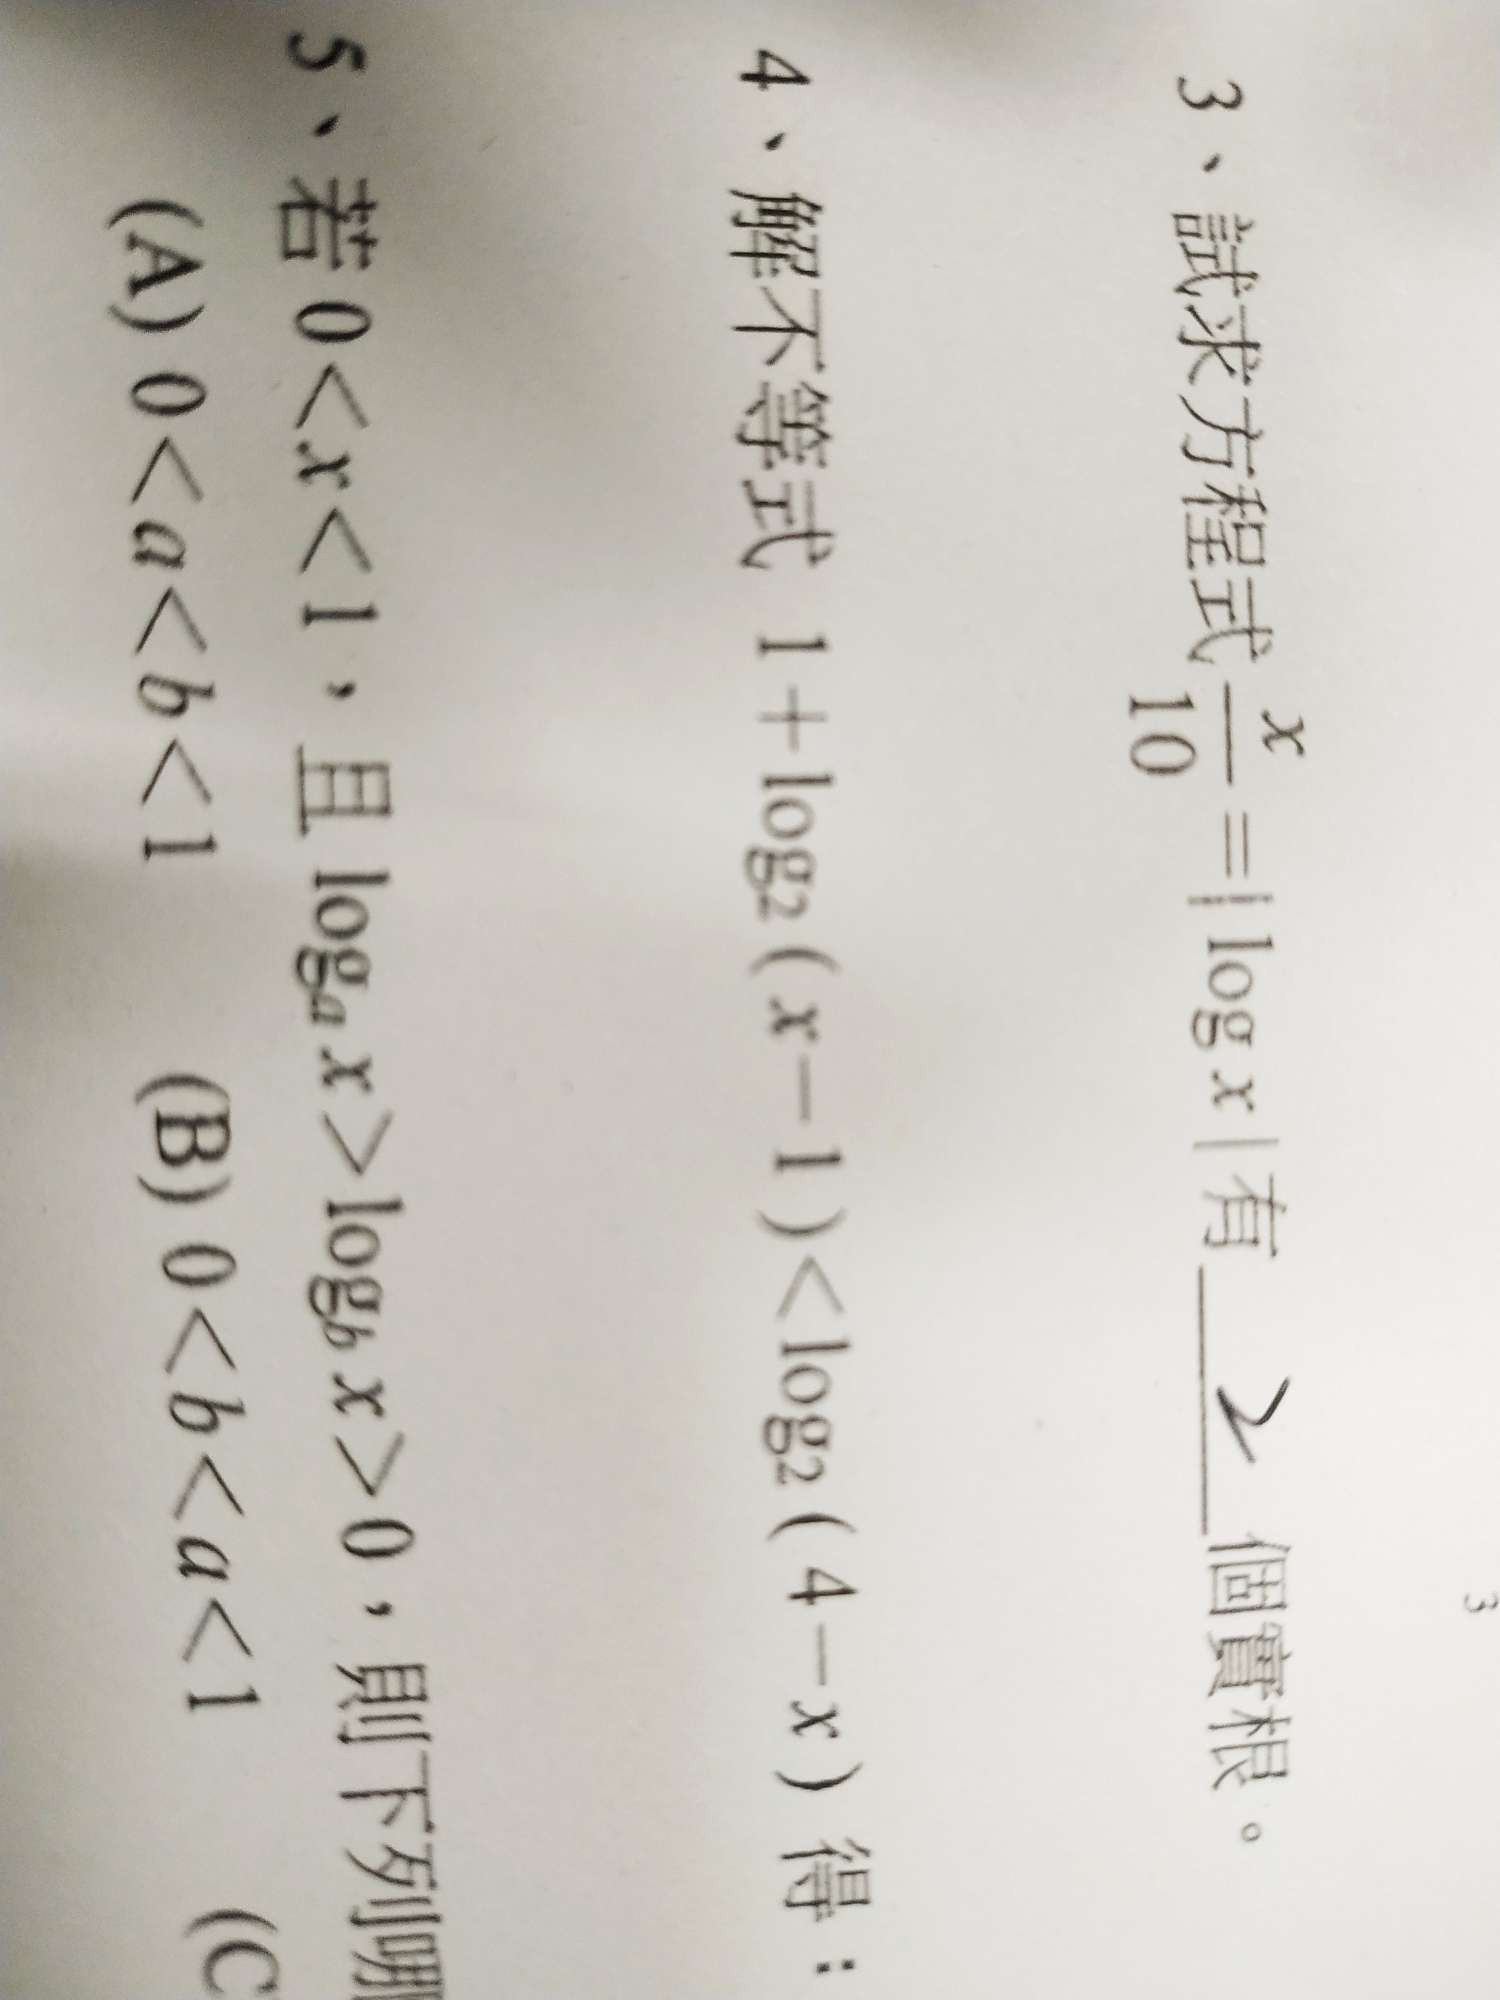 3
3、試求方程式 x/10 =|log x|有 2 個實根。
4、解不等式 1+log₂(x−1)<log₂(4−x) 得：
5、若 0<x<1，且 logₐ x>log_b x>0，則下列哪
(A) 0<a<b<1 (B) 0<b<a<1 (C